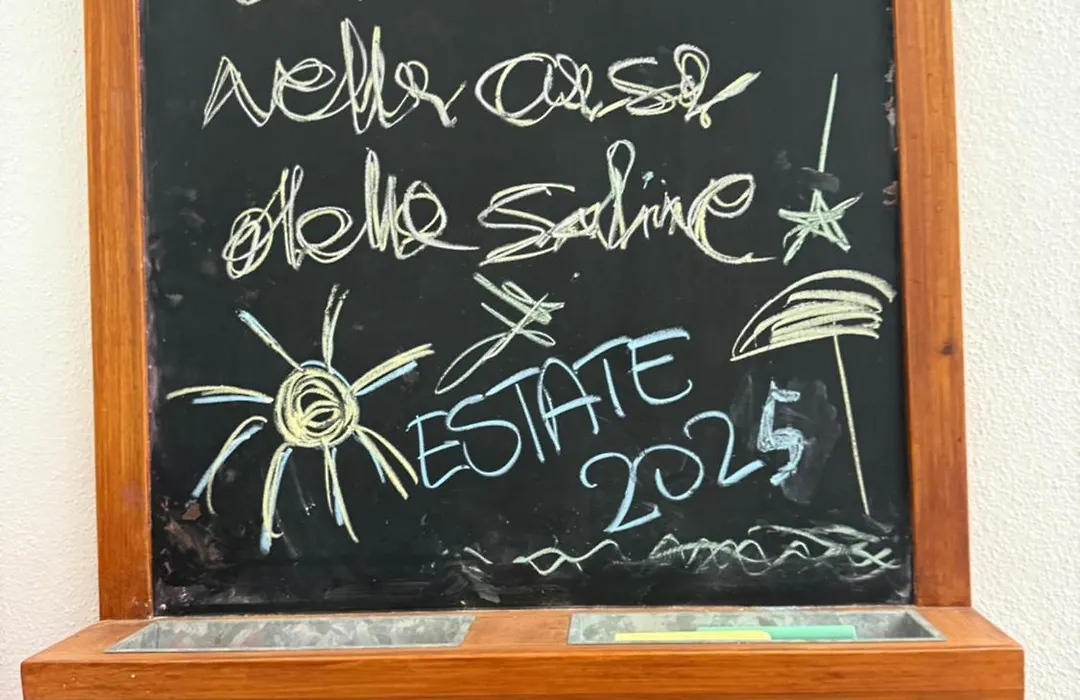 nella casa
delle saline
ESTATE
2025